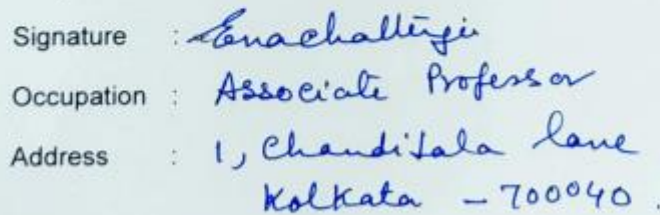 Signature : Enachatterjee
Occupation : Associate Professor
Address : 1, Chanditala lane
Kolkata - 700040.